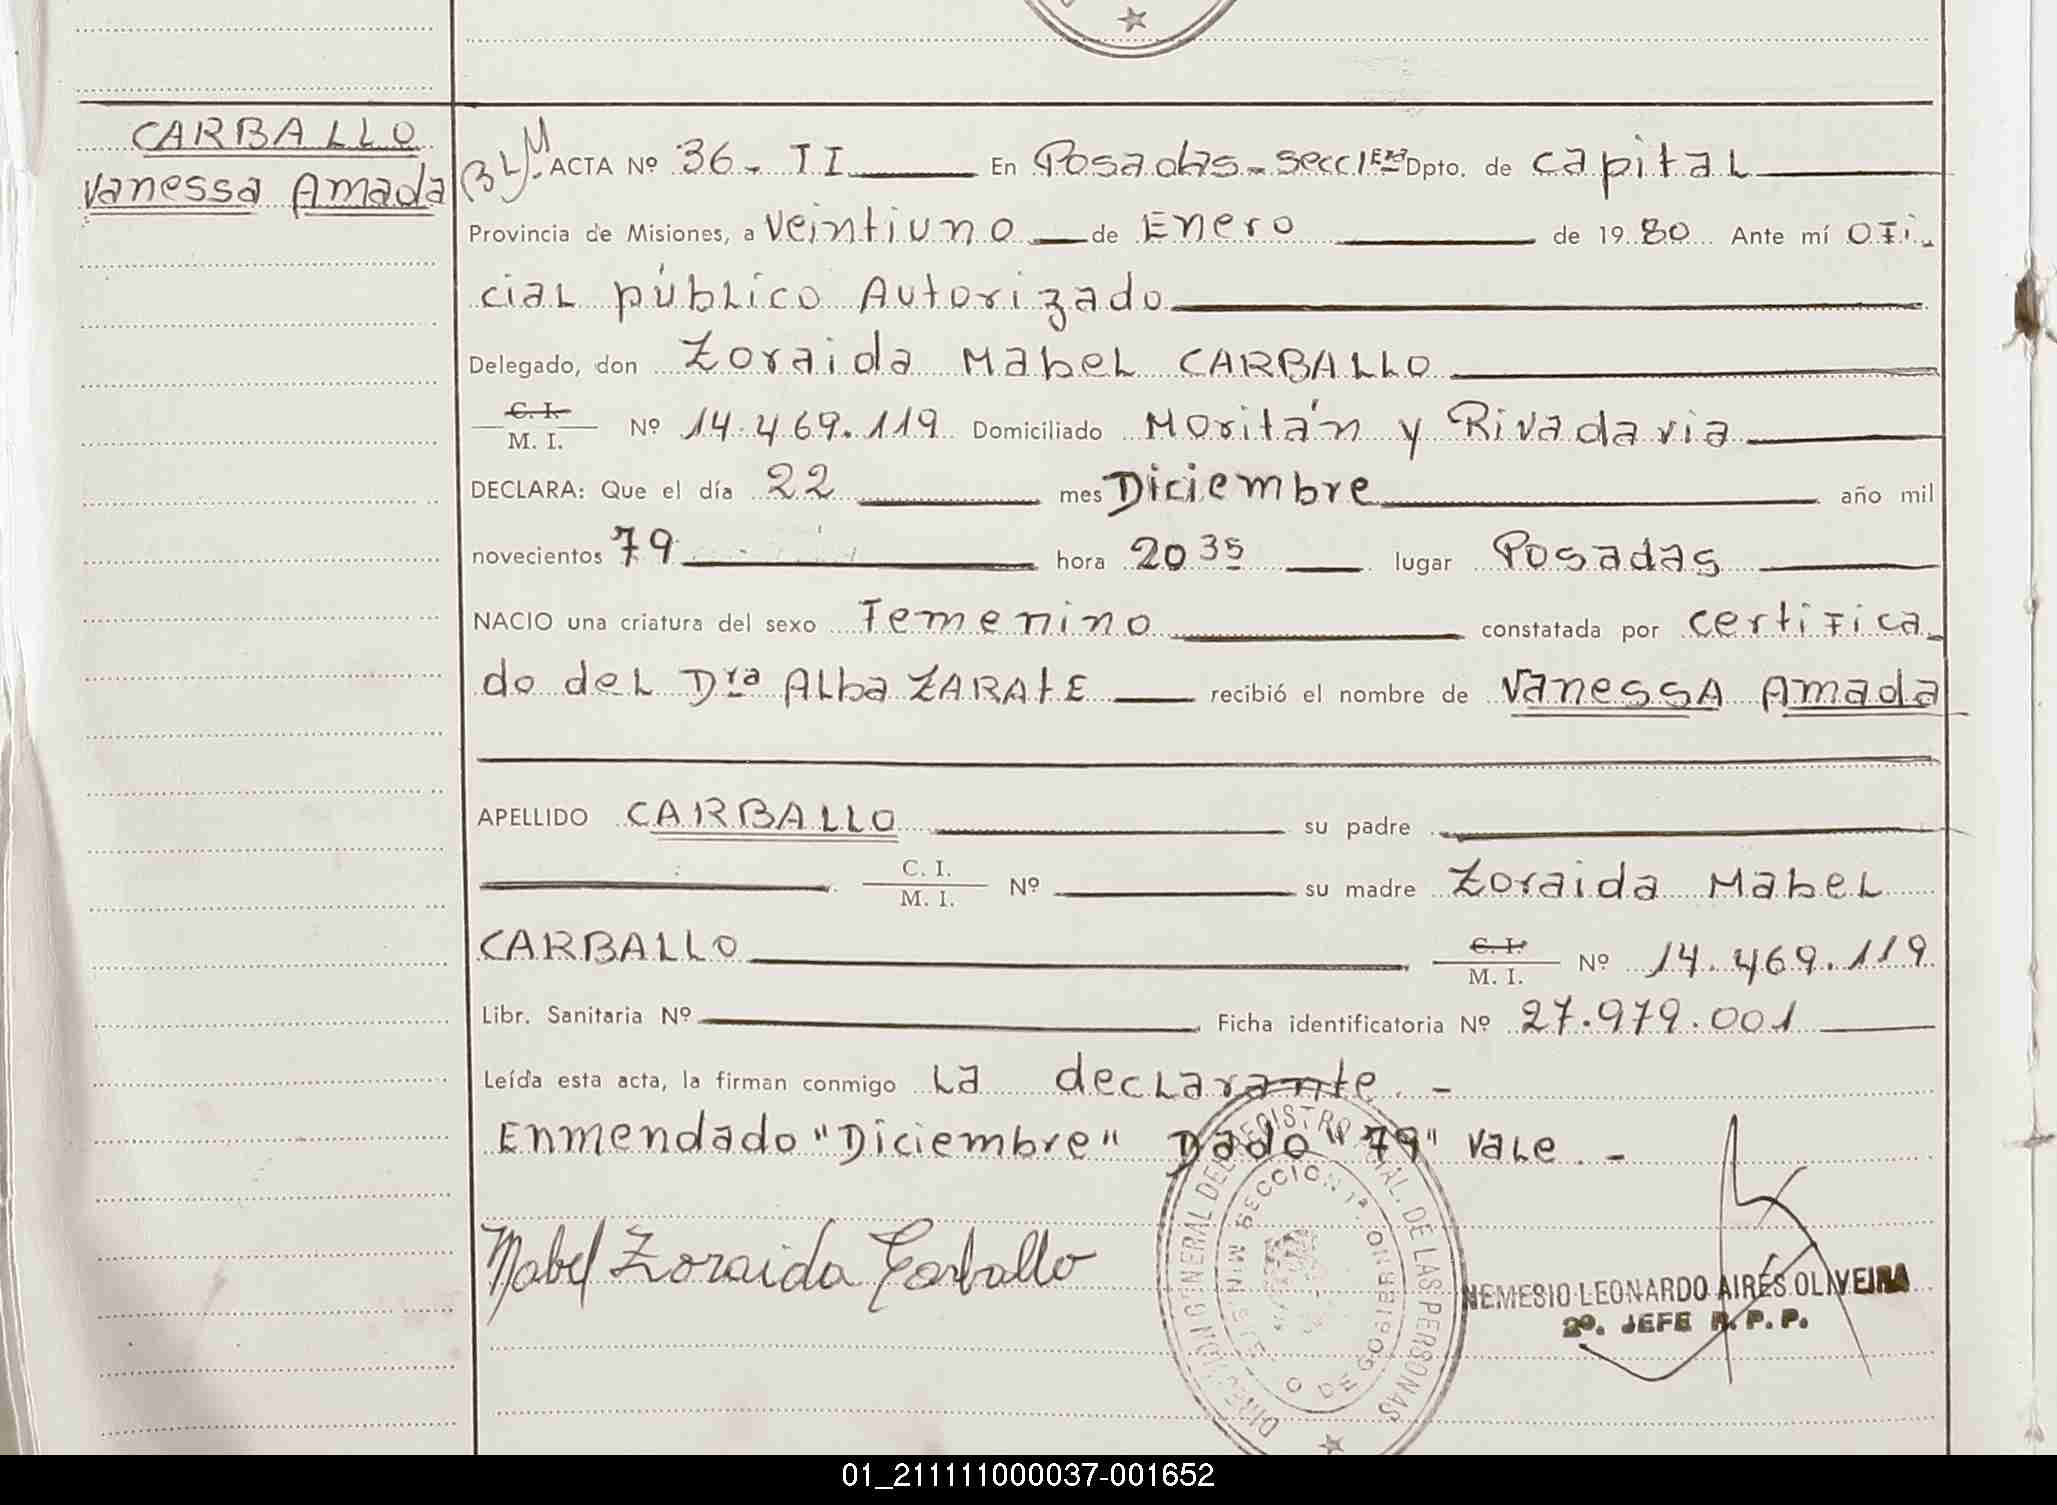 CARBALLO
Vanessa Amada
ACTA Nº 36 - II En Posadas - secc 1era Dpto. de capital
Provincia de Misiones, a veintiuno de Enero de 1980 Ante mí ofi-
cial público Autorizado
Delegado, don Zoraida Mabel CARBALLO
C. I.
M. I. Nº 14.469.119 Domiciliado Moritán y Rivadavia
DECLARA: Que el día 22 mes Diciembre año mil
novecientos 79 hora 20 35 lugar Posadas
NACIO una criatura del sexo Femenino constatada por certifica-
do del Dra Alba ZARATE recibió el nombre de Vanessa Amada
APELLIDO CARBALLO su padre
C. I.
M. I. Nº su madre Zoraida Mabel
CARBALLO C. I.
M. I. Nº 14.469.119
Libr. Sanitaria Nº Ficha identificatoria Nº 27.979.001
Leída esta acta, la firman conmigo la declarante. -
Enmendado "Diciembre" Dado "79" vale. -
Mabel Zoraida Carballo
DIRECCION GENERAL DEL REGISTRO PCIAL. DE LAS PERSONAS
SECCION 1ª.
MINIS
O DE GOBIERNO
NEMESIO LEONARDO AIRES OLIVEIRA
2º. JEFE R. P. P.
01_211111000037-001652